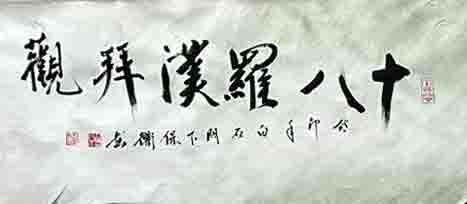 十八羅漢拜觀
癸卯年白石門下保衛書